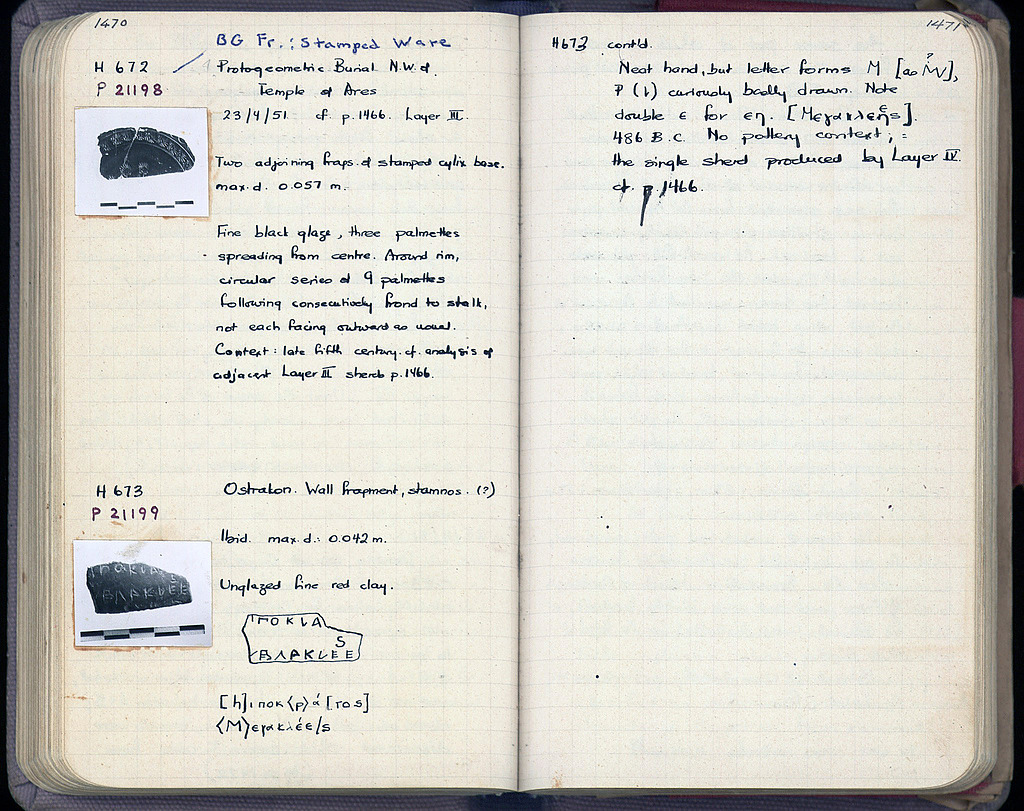 1470
BG Fr.: Stamped Ware
H 672
Protogeometric Burial N.W. of
P 21198
Temple of Ares
23/4/51 cf. p.1466. Layer III.
Two adjoining frags. of stamped cylix base.
max. d. 0.057 m.
Fine black glaze, three palmettes
spreading from centre. Around rim,
circular series of 9 palmettes
following consecutively frond to stalk,
not each facing outward as usual.
Context: late fifth century. cf. analysis of
adjacent Layer III sherds p.1466.
H 673
Ostrakon. Wall fragment, stamnos. (?)
P 21199
Ibid. max. d.: 0.042 m.
Unglazed fine red clay.
ΠΟΚLΑ
S
ΒΛΡΚLΕΕ
[h]ιποκ⟨ρ⟩ά[τοs]
⟨M⟩εγακλέε/s
1471
H673 cont'd.
Neat hand, but letter forms M [as],
P (L) curiously badly drawn. Note
double ε for εη. [Μεγακλεηs].
ε
486 B.C. No pottery context; =
the single sherd produced by Layer IV.
cf. p.1466.